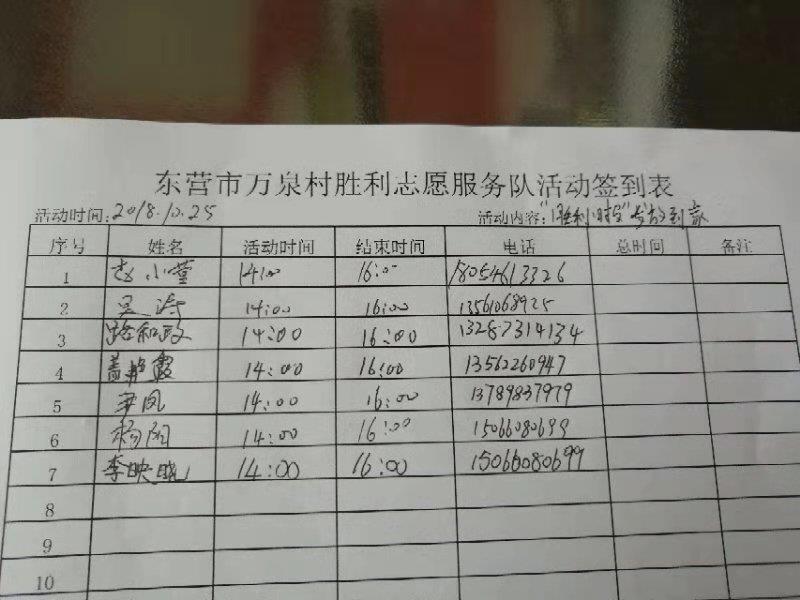 东营市万泉村胜利志愿服务队活动签到表
活动时间:2018.10.25 活动内容:"胜利小时会"发放到家
序号 姓名 活动时间 结束时间 电话 总时间 备注
1 赵小莹 14:00 16:00 18054613326
2 吴涛 14:00 16:00 13561068925
3 路和政 14:00 16:00 13287314134
4 艳霞 14:00 16:00 13562260947
5 李凤 14:00 16:00 13789837979
6 杨阳 14:00 16:00 15066080699
7 李映晓 14:00 16:00 15066080699
8
9
10